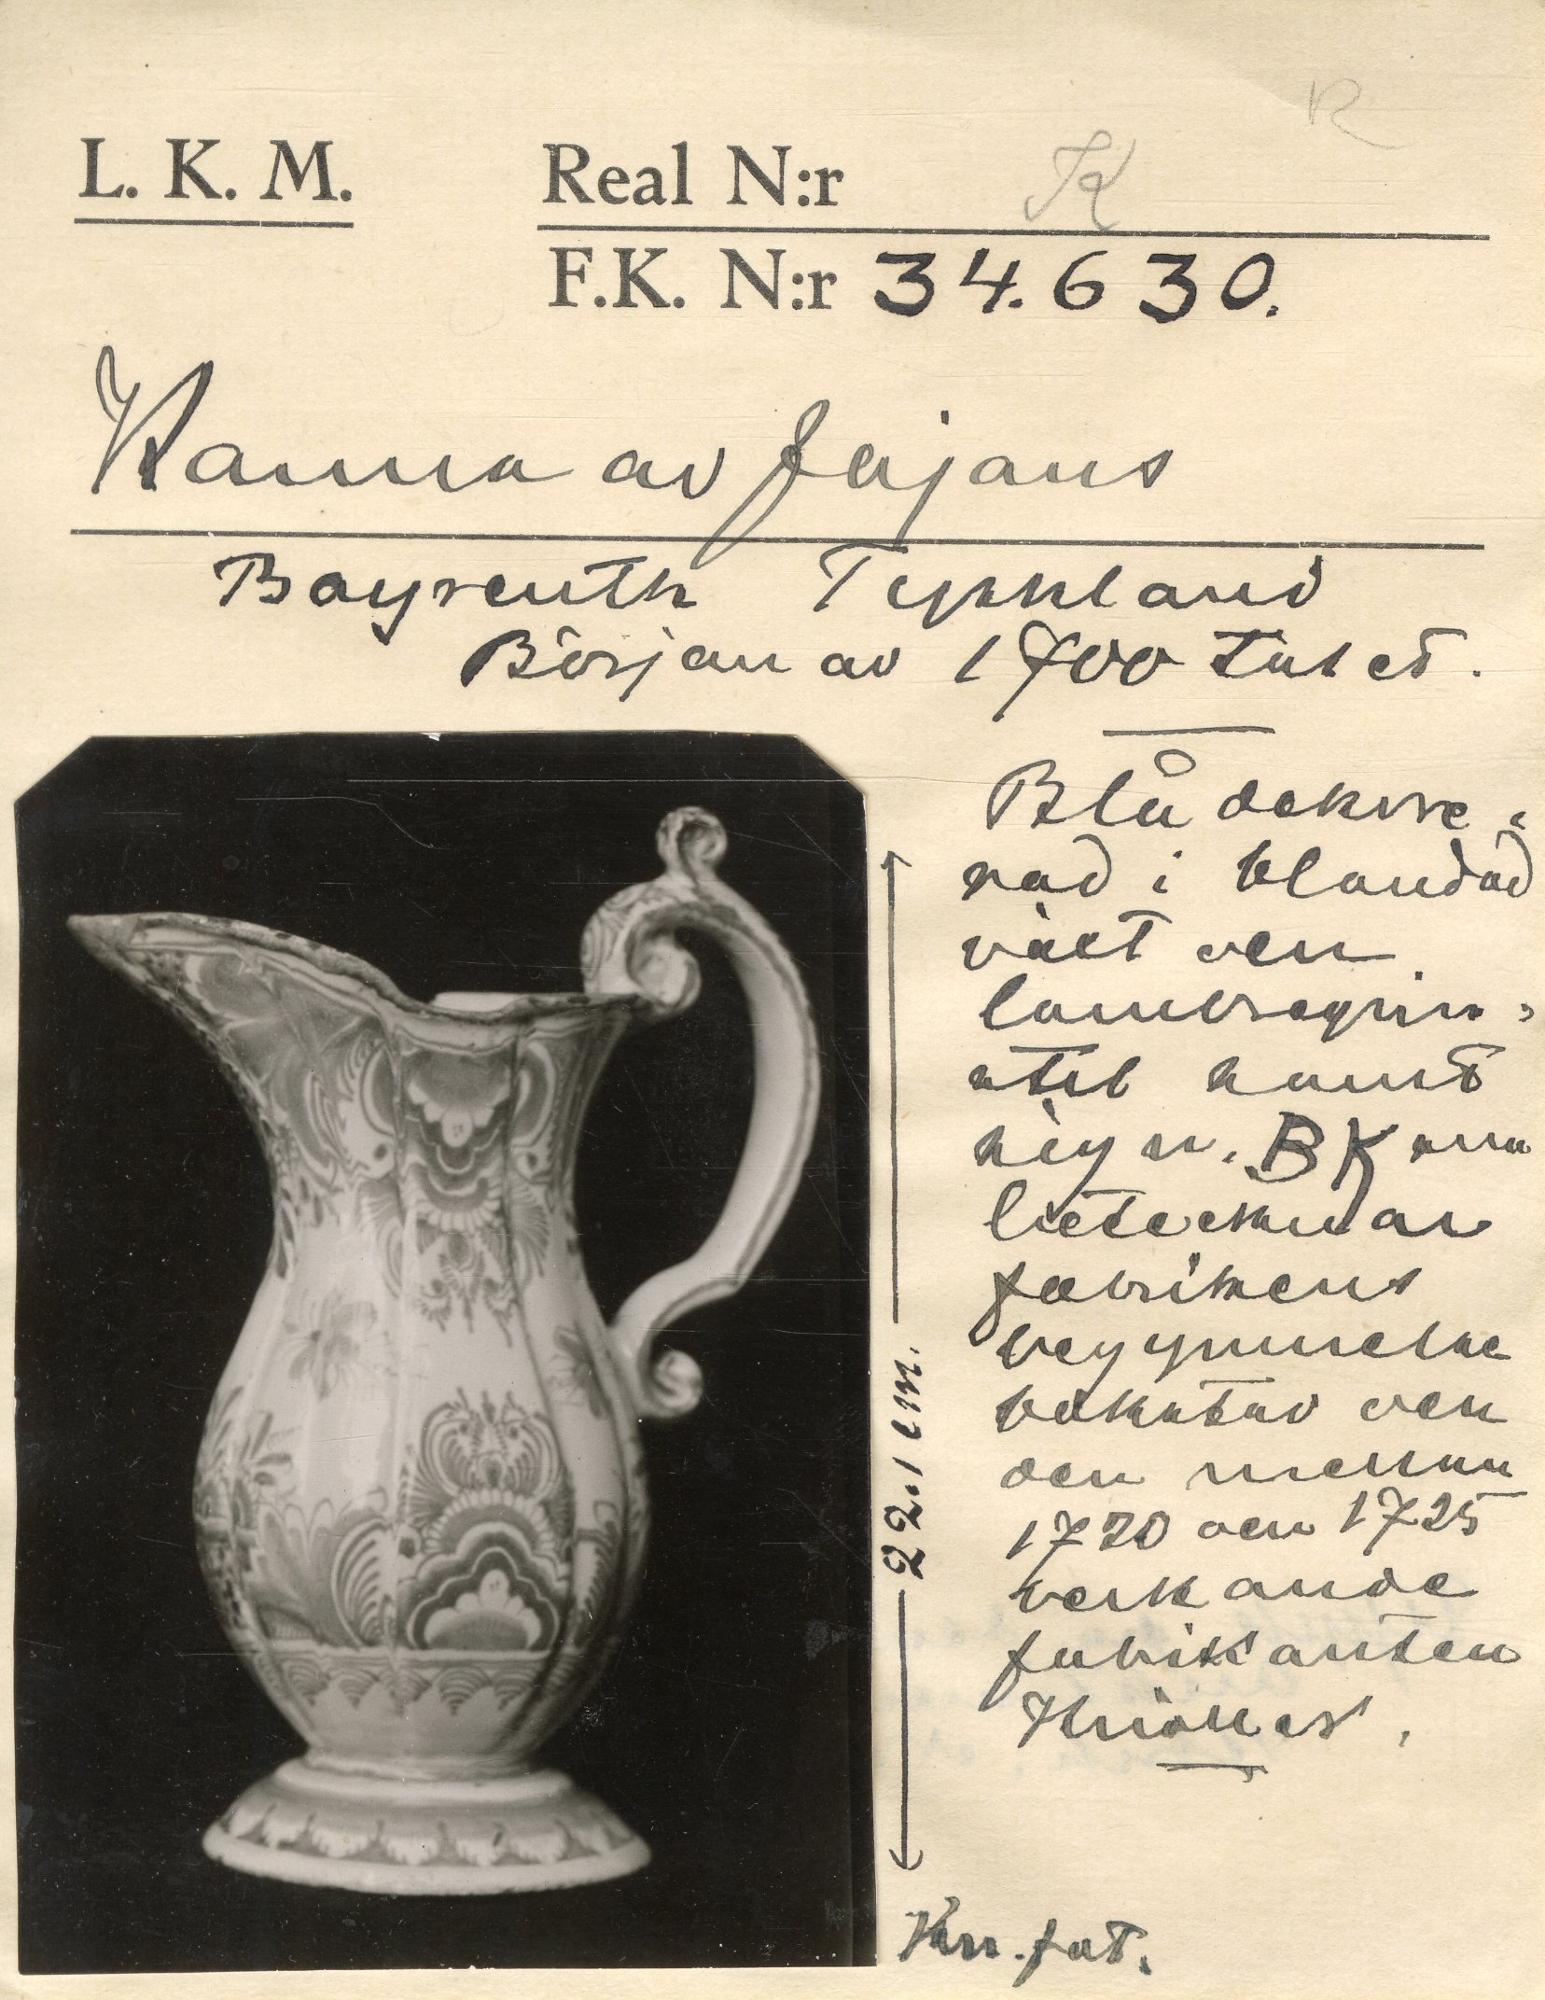 R
L. K. M.
Real N:r K
F.K. N:r 34.630.
Kanna av fajans
Bayreuth Tyskland
Början av 1700 talet.
Blå dekore-
rad i blandad
växt och
lambrequin-
stil samt
sign. BK som
betecknar
fabrikens
begynnelse
bokstav och
den mellan
1720 och 1725
verkande
fabrikanten
Knöller.
22.1 cm.
Km. fot.